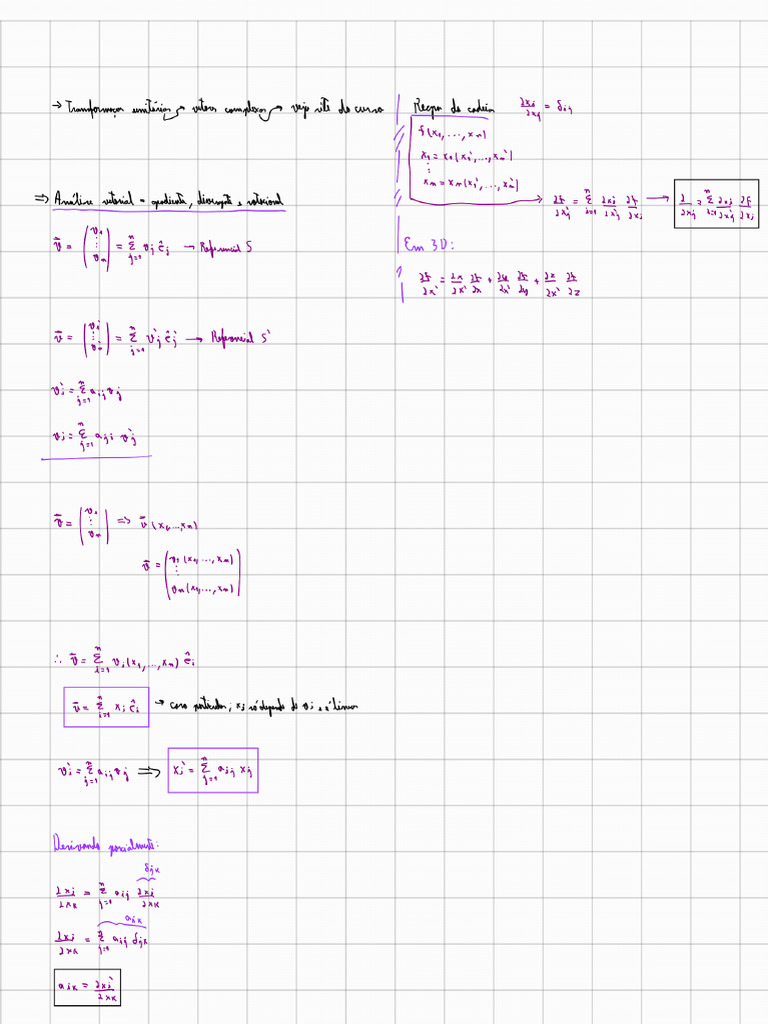 → Transformações unitárias → vetores complexos → veja site do curso
⇒ Análise vetorial = gradiente, divergente e rotacional
v̄ = (v₁ ⋮ vₙ) = Σⁿⱼ₌₁ vⱼ êⱼ → Referencial S
v̄ = (v₁' ⋮ vₙ') = Σⁿⱼ₌₁ vⱼ' êⱼ' → Referencial S'
vᵢ' = Σⁿⱼ₌₁ aᵢⱼ vⱼ
vᵢ = Σⁿⱼ₌₁ aⱼᵢ vⱼ'
v̄ = (v₁ ⋮ vₙ) ⇒ v̄ (x₁, ..., xₙ)
v̄ = (v₁(x₁, ..., xₙ) ⋮ vₙ(x₁, ..., xₙ))
∴ v̄ = Σⁿᵢ₌₁ vᵢ(x₁, ..., xₙ) êᵢ
v̄ = Σⁿᵢ₌₁ xᵢ êᵢ → caso particular; xᵢ só depende de vᵢ e é linear
vᵢ' = Σⁿⱼ₌₁ aᵢⱼ vⱼ ⇒ xᵢ' = Σⁿⱼ₌₁ aᵢⱼ xⱼ
Derivando parcialmente:
δⱼₖ
∂xᵢ/∂xₖ = Σⁿⱼ₌₁ aᵢⱼ ∂xⱼ/∂xₖ
aᵢₖ
∂xᵢ/∂xₖ = Σⁿⱼ₌₁ aᵢⱼ δⱼₖ
aᵢₖ = ∂xᵢ'/∂xₖ
Regra da cadeia ∂xᵢ/∂xⱼ = δᵢⱼ
f(x₁, ..., xₙ)
x₁ = x₁(x₁', ..., xₙ')
⋮
xₙ = xₙ(x₁', ..., xₙ')
∂f/∂xⱼ' = Σⁿᵢ₌₁ ∂xᵢ/∂xⱼ' ∂f/∂xᵢ → ∂/∂xⱼ' = Σⁿᵢ₌₁ ∂xᵢ/∂xⱼ' ∂f/∂xᵢ
Em 3D:
∂f/∂x' = ∂x/∂x' ∂f/∂x + ∂y/∂x' ∂f/∂y + ∂z/∂x' ∂f/∂z